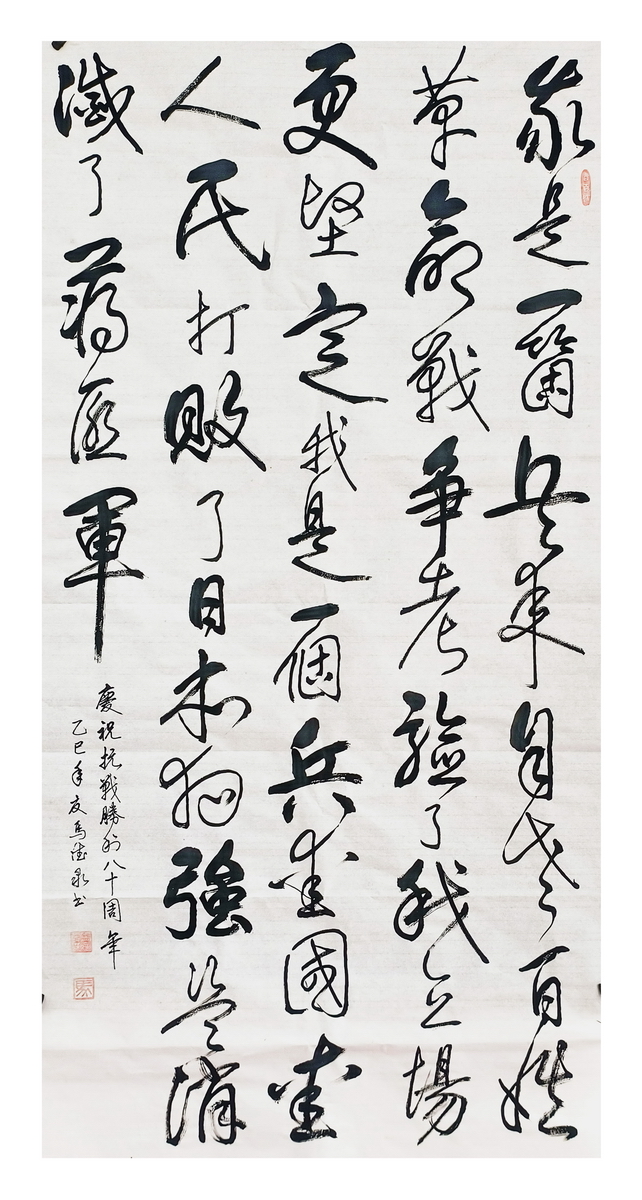 我是一箇兵来自老百姓
革命戰争考驗了我立場
更堅定我是一個兵愛國愛
人民打敗了日本狗強盗消
滅了蒋匪軍
慶祝抗戰勝利八十周年
乙巳年友馬德泉书